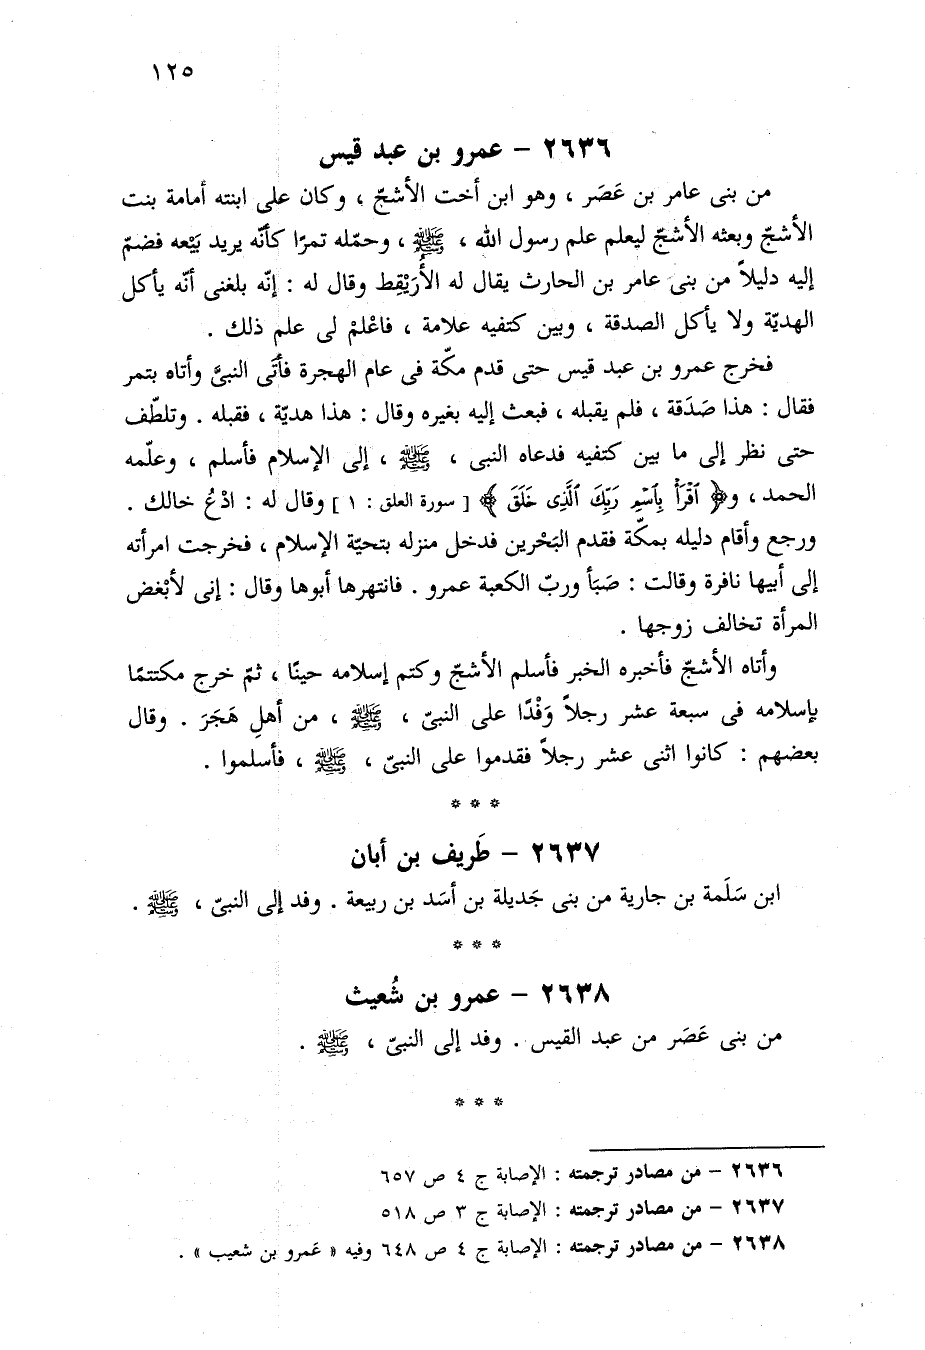 ١٢٥
٢٦٣٦ – عمرو بن عبد قيس
من بنى عامر بن عَصَر ، وهو ابن أخت الأشجّ ، وكان على ابنته أمامة بنت
الأشجّ وبعثه الأشجّ ليعلم علم رسول الله ، ﷺ ، وحمّله تمرًا كأنّه يريد بَيْعه فضمّ
إليه دليلاً من بنى عامر بن الحارث يقال له الأُرَيْقِط وقال له : إنّه بلغنى أنّه يأكل
الهديّة ولا يأكل الصدقة ، وبين كتفيه علامة ، فاعْلمْ لى علم ذلك .
فخرج عمرو بن عبد قيس حتى قدم مكّة فى عام الهجرة فأتَى النبىَّ وأتاه بتمر
فقال : هذا صَدَقة ، فلم يقبله ، فبعث إليه بغيره وقال : هذا هديّة ، فقبله . وتلطّف
حتى نظر إلى ما بين كتفيه فدعاه النبى ، ﷺ ، إلى الإسلام فأسلم ، وعلّمه
الحمد ، و﴿ ٱقْرَأْ بِٱسْمِ رَبِّكَ ٱلَّذِى خَلَقَ ﴾ [ سورة العلق : ١ ] وقال له : ادْعُ خالك .
ورجع وأقام دليله بمكّة فقدم البَحْرين فدخل منزله بتحيّة الإسلام ، فخرجت امرأته
إلى أبيها نافرة وقالت : صَبَأ وربّ الكعبة عمرو . فانتهرها أبوها وقال : إنى لأبْغض
المرأة تخالف زوجها .
وأتاه الأشجّ فأخبره الخبر فأسلم الأشجّ وكتم إسلامه حينًا ، ثمّ خرج مكتتمًا
بإسلامه فى سبعة عشر رجلاً وَفْدًا على النبىّ ، ﷺ ، من أهلِ هَجَرَ . وقال
بعضهم : كانوا اثنى عشر رجلاً فقدموا على النبىّ ، ﷺ ، فأسلموا .
* * *
٢٦٣٧ – طَريف بن أبان
ابن سَلَمة بن جارية من بنى جَديلة بن أسَد بن ربيعة . وفد إلى النبىّ ، ﷺ .
* * *
٢٦٣٨ – عمرو بن شُعيث
من بنى عَصَر من عبد القيس . وفد إلى النبىّ ، ﷺ .
* * *
٢٦٣٦ – من مصادر ترجمته : الإصابة ج ٤ ص ٦٥٧
٢٦٣٧ – من مصادر ترجمته : الإصابة ج ٣ ص ٥١٨
٢٦٣٨ – من مصادر ترجمته : الإصابة ج ٤ ص ٦٤٨ وفيه « عَمرو بن شعيب » .